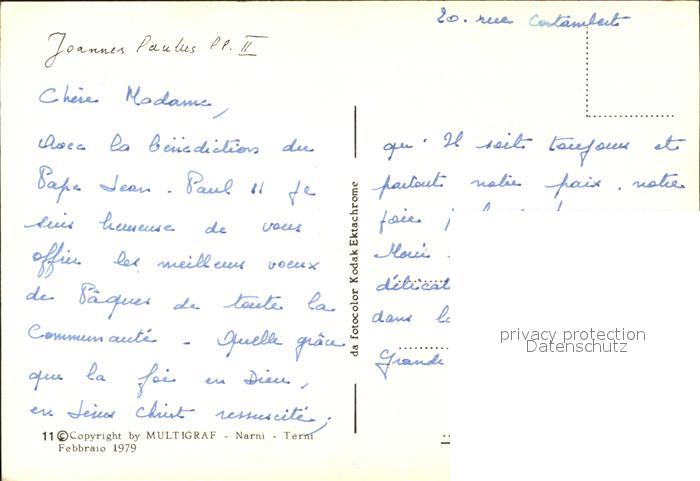 20. rue Cortambert
Joannes Paulus PP. II
Chère Madame,
Avec la bénédiction du
Pape Jean-Paul II je
suis heureuse de vous
offrir les meilleurs voeux
de Pâques de toute la
Communauté - Quelle grâce
que la foi en Dieu,
en Jésus Christ ressuscité;
qu'Il soit toujours et
partout notre paix, notre
joie ;
Merci
délicat
dans la
Grande
da fotocolor Kodak Ektachrome
11 © Copyright by MULTIGRAF - Narni - Terni
Febbraio 1979
privacy protection
Datenschutz